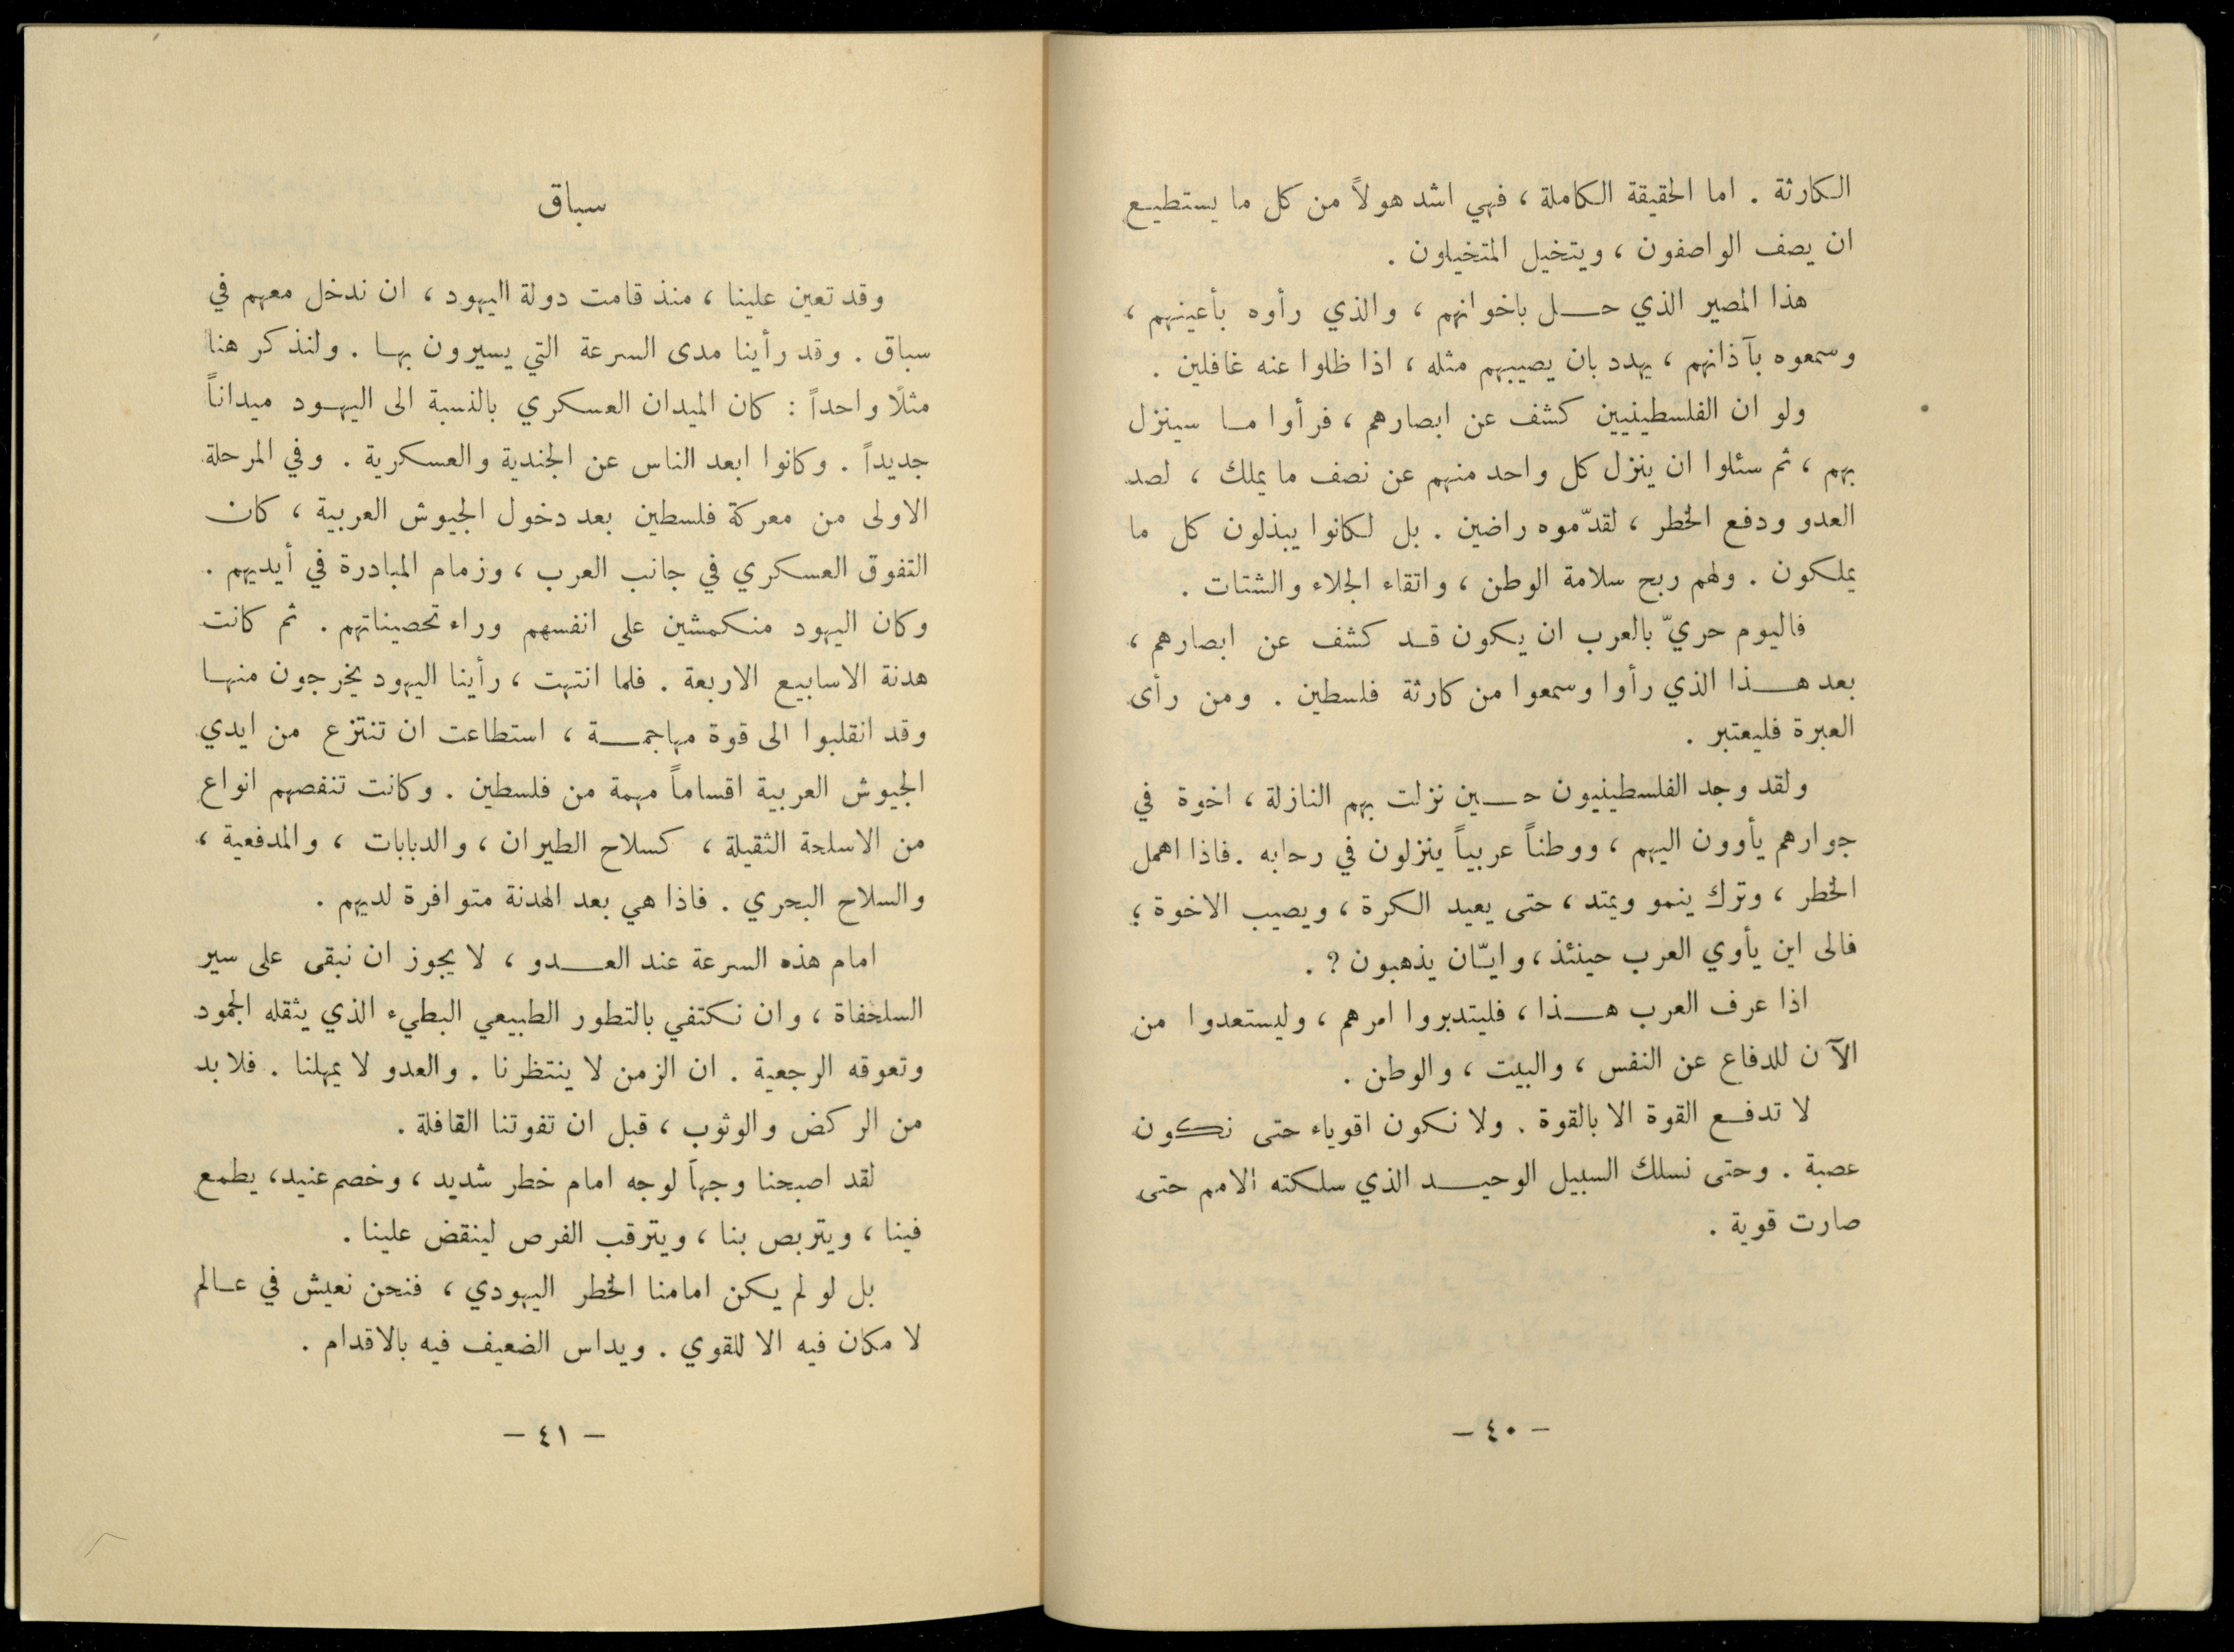 الكارثة . اما الحقيقة الكاملة ، فهي اشد هولاً من كل ما يستطيع
ان يصف الواصفون ، ويتخيل المتخيلون .
هذا المصير الذي حل باخوانهم ، والذي رأوه بأعينهم ،
وسمعوه بآذانهم ، يهدد بان يصيبهم مثله ، اذا ظلوا عنه غافلين .
ولو ان الفلسطينيين كشف عن ابصارهم ، فرأوا ما سينزل
بهم ، ثم سئلوا ان ينزل كل واحد منهم عن نصف ما يملك ، لصد
العدو ودفع الخطر ، لقدّموه راضين . بل لكانوا يبذلون كل ما
يملكون . ولهم ربح سلامة الوطن ، واتقاء الجلاء والشتات .
فاليوم حريّ بالعرب ان يكون قد كشف عن ابصارهم ،
بعد هذا الذي رأوا وسمعوا من كارثة فلسطين . ومن رأى
العبرة فليعتبر .
ولقد وجد الفلسطينيون حين نزلت بهم النازلة ، اخوة في
جوارهم يأوون اليهم ، ووطناً عربياً ينزلون في رحابه . فاذا اهمل
الخطر ، وترك ينمو ويمتد ، حتى يعيد الكرة ، ويصيب الاخوة ؛
فالى اين يأوي العرب حينئذ ، وايّان يذهبون ? .
اذا عرف العرب هذا ، فليتدبروا امرهم ، وليستعدوا من
الآن للدفاع عن النفس ، والبيت ، والوطن .
لا تدفع القوة الا بالقوة . ولا نكون اقوياء حتى نكون
عصبة . وحتى نسلك السبيل الوحيد الذي سلكته الامم حتى
صارت قوية .
– ٤٠ –
سباق
وقد تعين علينا ، منذ قامت دولة اليهود ، ان ندخل معهم في
سباق . وقد رأينا مدى السرعة التي يسيرون بها . ولنذكر هنا
مثلًا واحداً : كان الميدان العسكري بالنسبة الى اليهود ميداناً
جديداً . وكانوا ابعد الناس عن الجندية والعسكرية . وفي المرحلة
الاولى من معركة فلسطين بعد دخول الجيوش العربية ، كان
التفوق العسكري في جانب العرب ، وزمام المبادرة في أيديهم .
وكان اليهود منكمشين على انفسهم وراء تحصيناتهم . ثم كانت
هدنة الاسابيع الاربعة . فلما انتهت ، رأينا اليهود يخرجون منها
وقد انقلبوا الى قوة مهاجمة ، استطاعت ان تنتزع من ايدي
الجيوش العربية اقساماً مهمة من فلسطين . وكانت تنقصهم انواع
من الاسلحة الثقيلة ، كسلاح الطيران ، والدبابات ، والمدفعية ،
والسلاح البحري . فاذا هي بعد الهدنة متوافرة لديهم .
امام هذه السرعة عند العدو ، لا يجوز ان نبقى على سير
السلحفاة ، وان نكتفي بالتطور الطبيعي البطيء الذي يثقله الجمود
وتعوقه الرجعية . ان الزمن لا ينتظرنا . والعدو لا يمهلنا . فلا بد
من الركض والوثوب ، قبل ان تفوتنا القافلة .
لقد اصبحنا وجهاً لوجه امام خطر شديد ، وخصم عنيد ، يطمع
فينا ، ويتربص بنا ، ويترقب الفرص لينقض علينا .
بل لو لم يكن امامنا الخطر اليهودي ، فنحن نعيش في عالم
لا مكان فيه الا للقوي . ويداس الضعيف فيه بالاقدام .
– ٤١ –